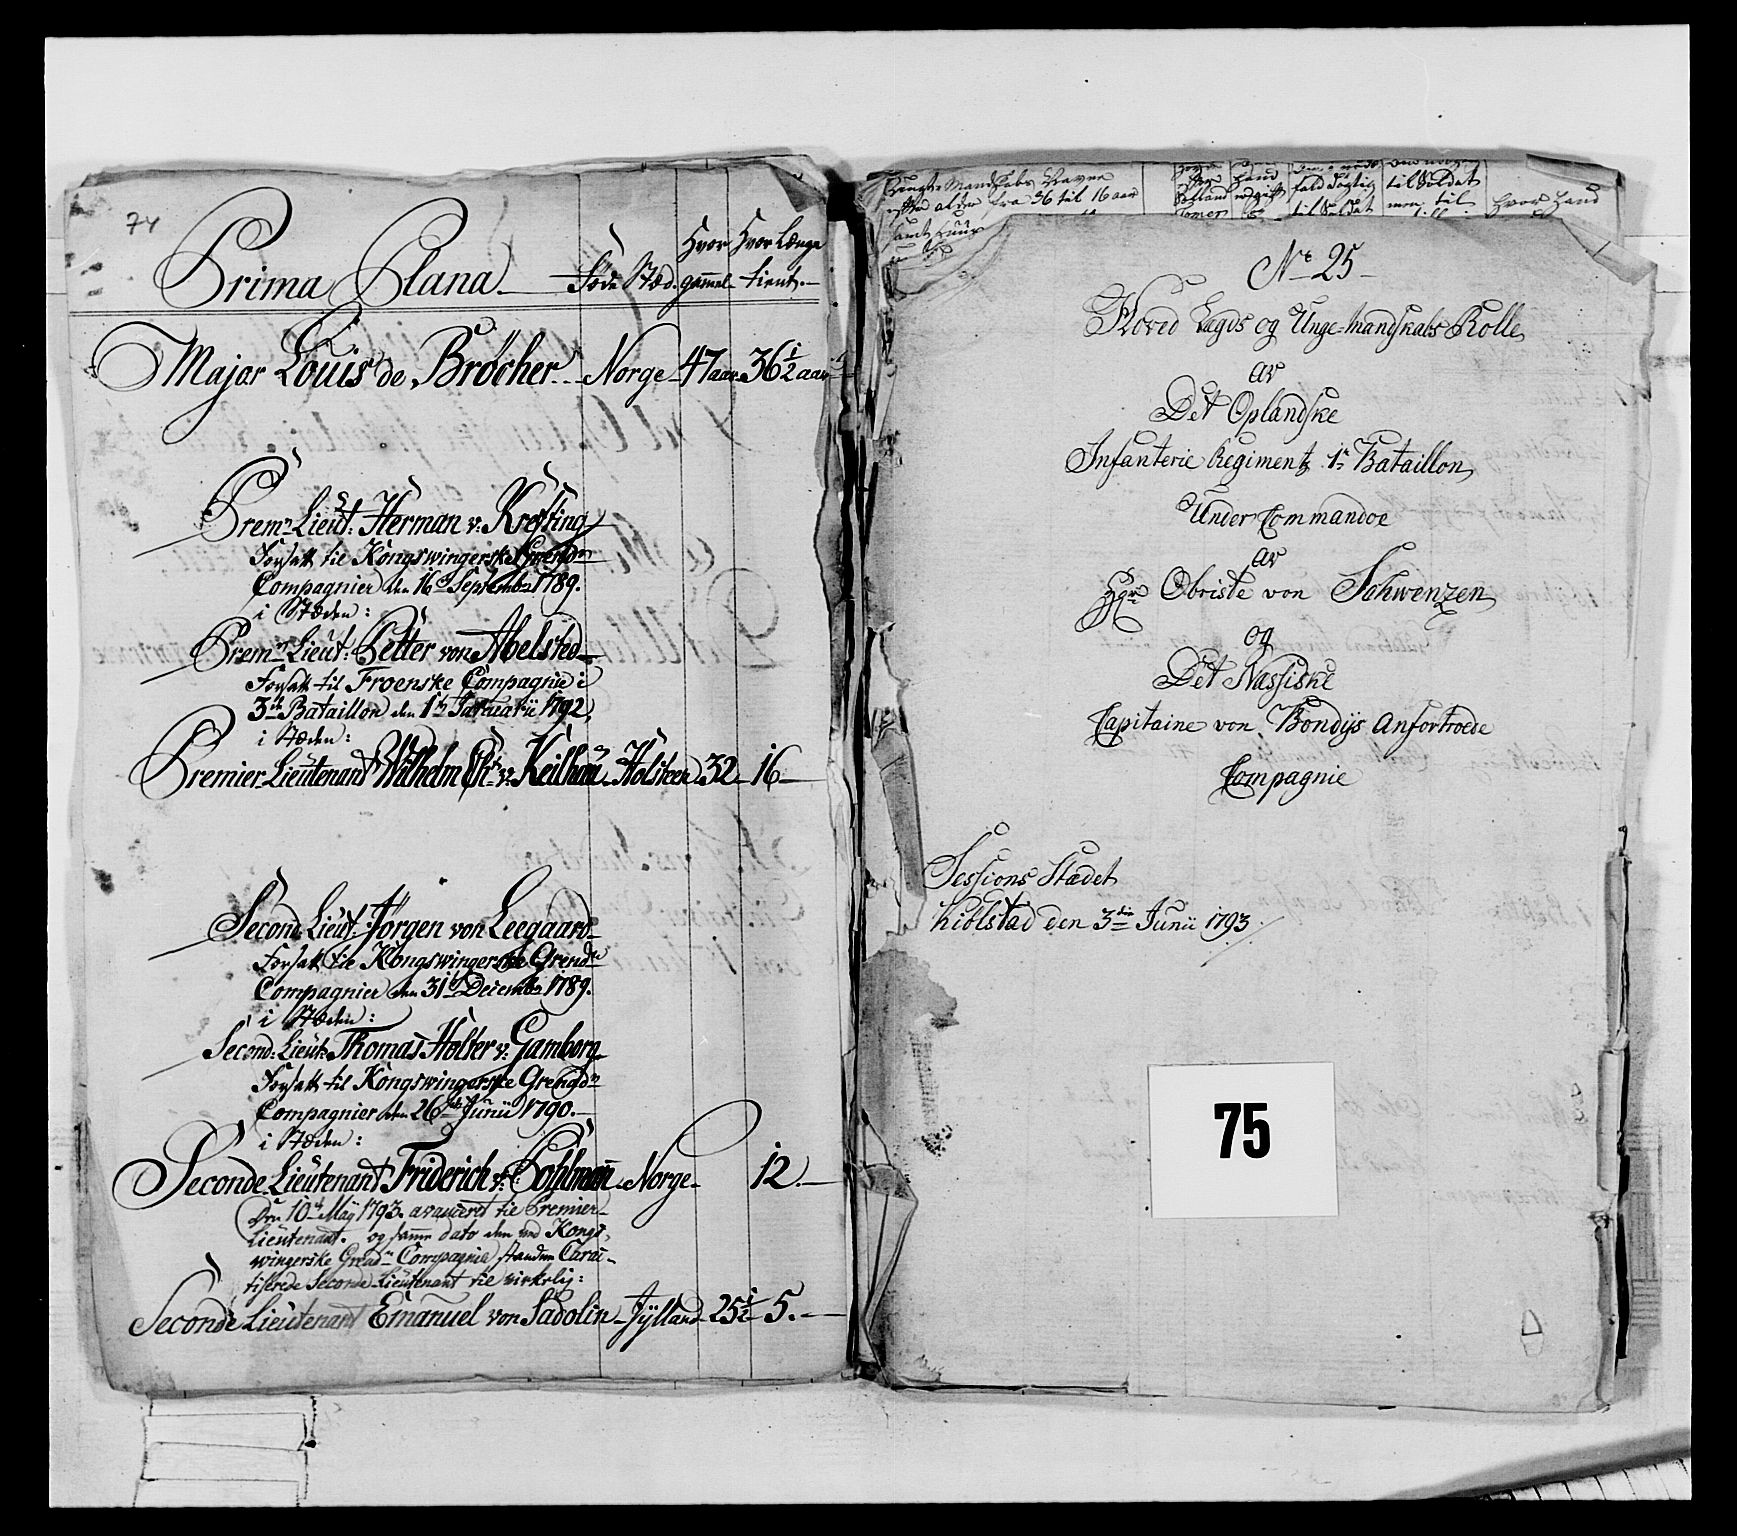 74
Hvor Hvor Længe
Prima Plana Føde Stæd. gammel tient.
Major Louis de Brøcher Norge 47 aar 36 1/2 aar
Premr Lieut: Herman v: Krefting
Forsatt til Kongswingerske Grenadr
Compagnier den 16de Septembr 1789.
i Stæden:
Premr Lieut: Petter von Abelsted
Forsatt til Froenske Compagnie i
3die Bataillon den 1ste Januarii 1792,
i Stæden:
Premier Lieutenant Wilhelm Chr: v: Keilhau Holsteen 32 16
Second Lieut: Jørgen von Leegaard
Forsatt til Kongswingerske Grenadr
Compagnier den 31te Decembr 1789.
i Stæden:
Second: Lieut: Thomas Holter v: Gamborg
Forsatt til Kongswingerske Grenadr
Compagnier den 26de Junii 1790.
i Stæden:
Seconde Lieutenant Friderich v: Pohlmann Norge 12.
Den 10de Maÿ 1793. avanceret til Premier
Lieutenant. og samme dato den ved Kongs,
wingerske Grenadr Compagnie standne Carac-
tiserede Seconde Lieutenant til virkelig:
Seconde Lieutenant Emanuel von Sadolin Jÿlland 25 1/2 5.
Mandskabs Navne
alder fra 36 til 16 aar
til Soldat
hvor hand
No 25
Hoved Lægds og Unge-Mandskabs Rolle
av
Det Oplandske
Infanterie Regiments 1te Bataillon
Under Commandoe
av
Hgr Obriste von Schwenzen
og
Det Nassiske
Capitaine von Bondÿs Anfortroede
Compagnie
Sessions Stædet
Kiølstad den 3die Junii 1793
75